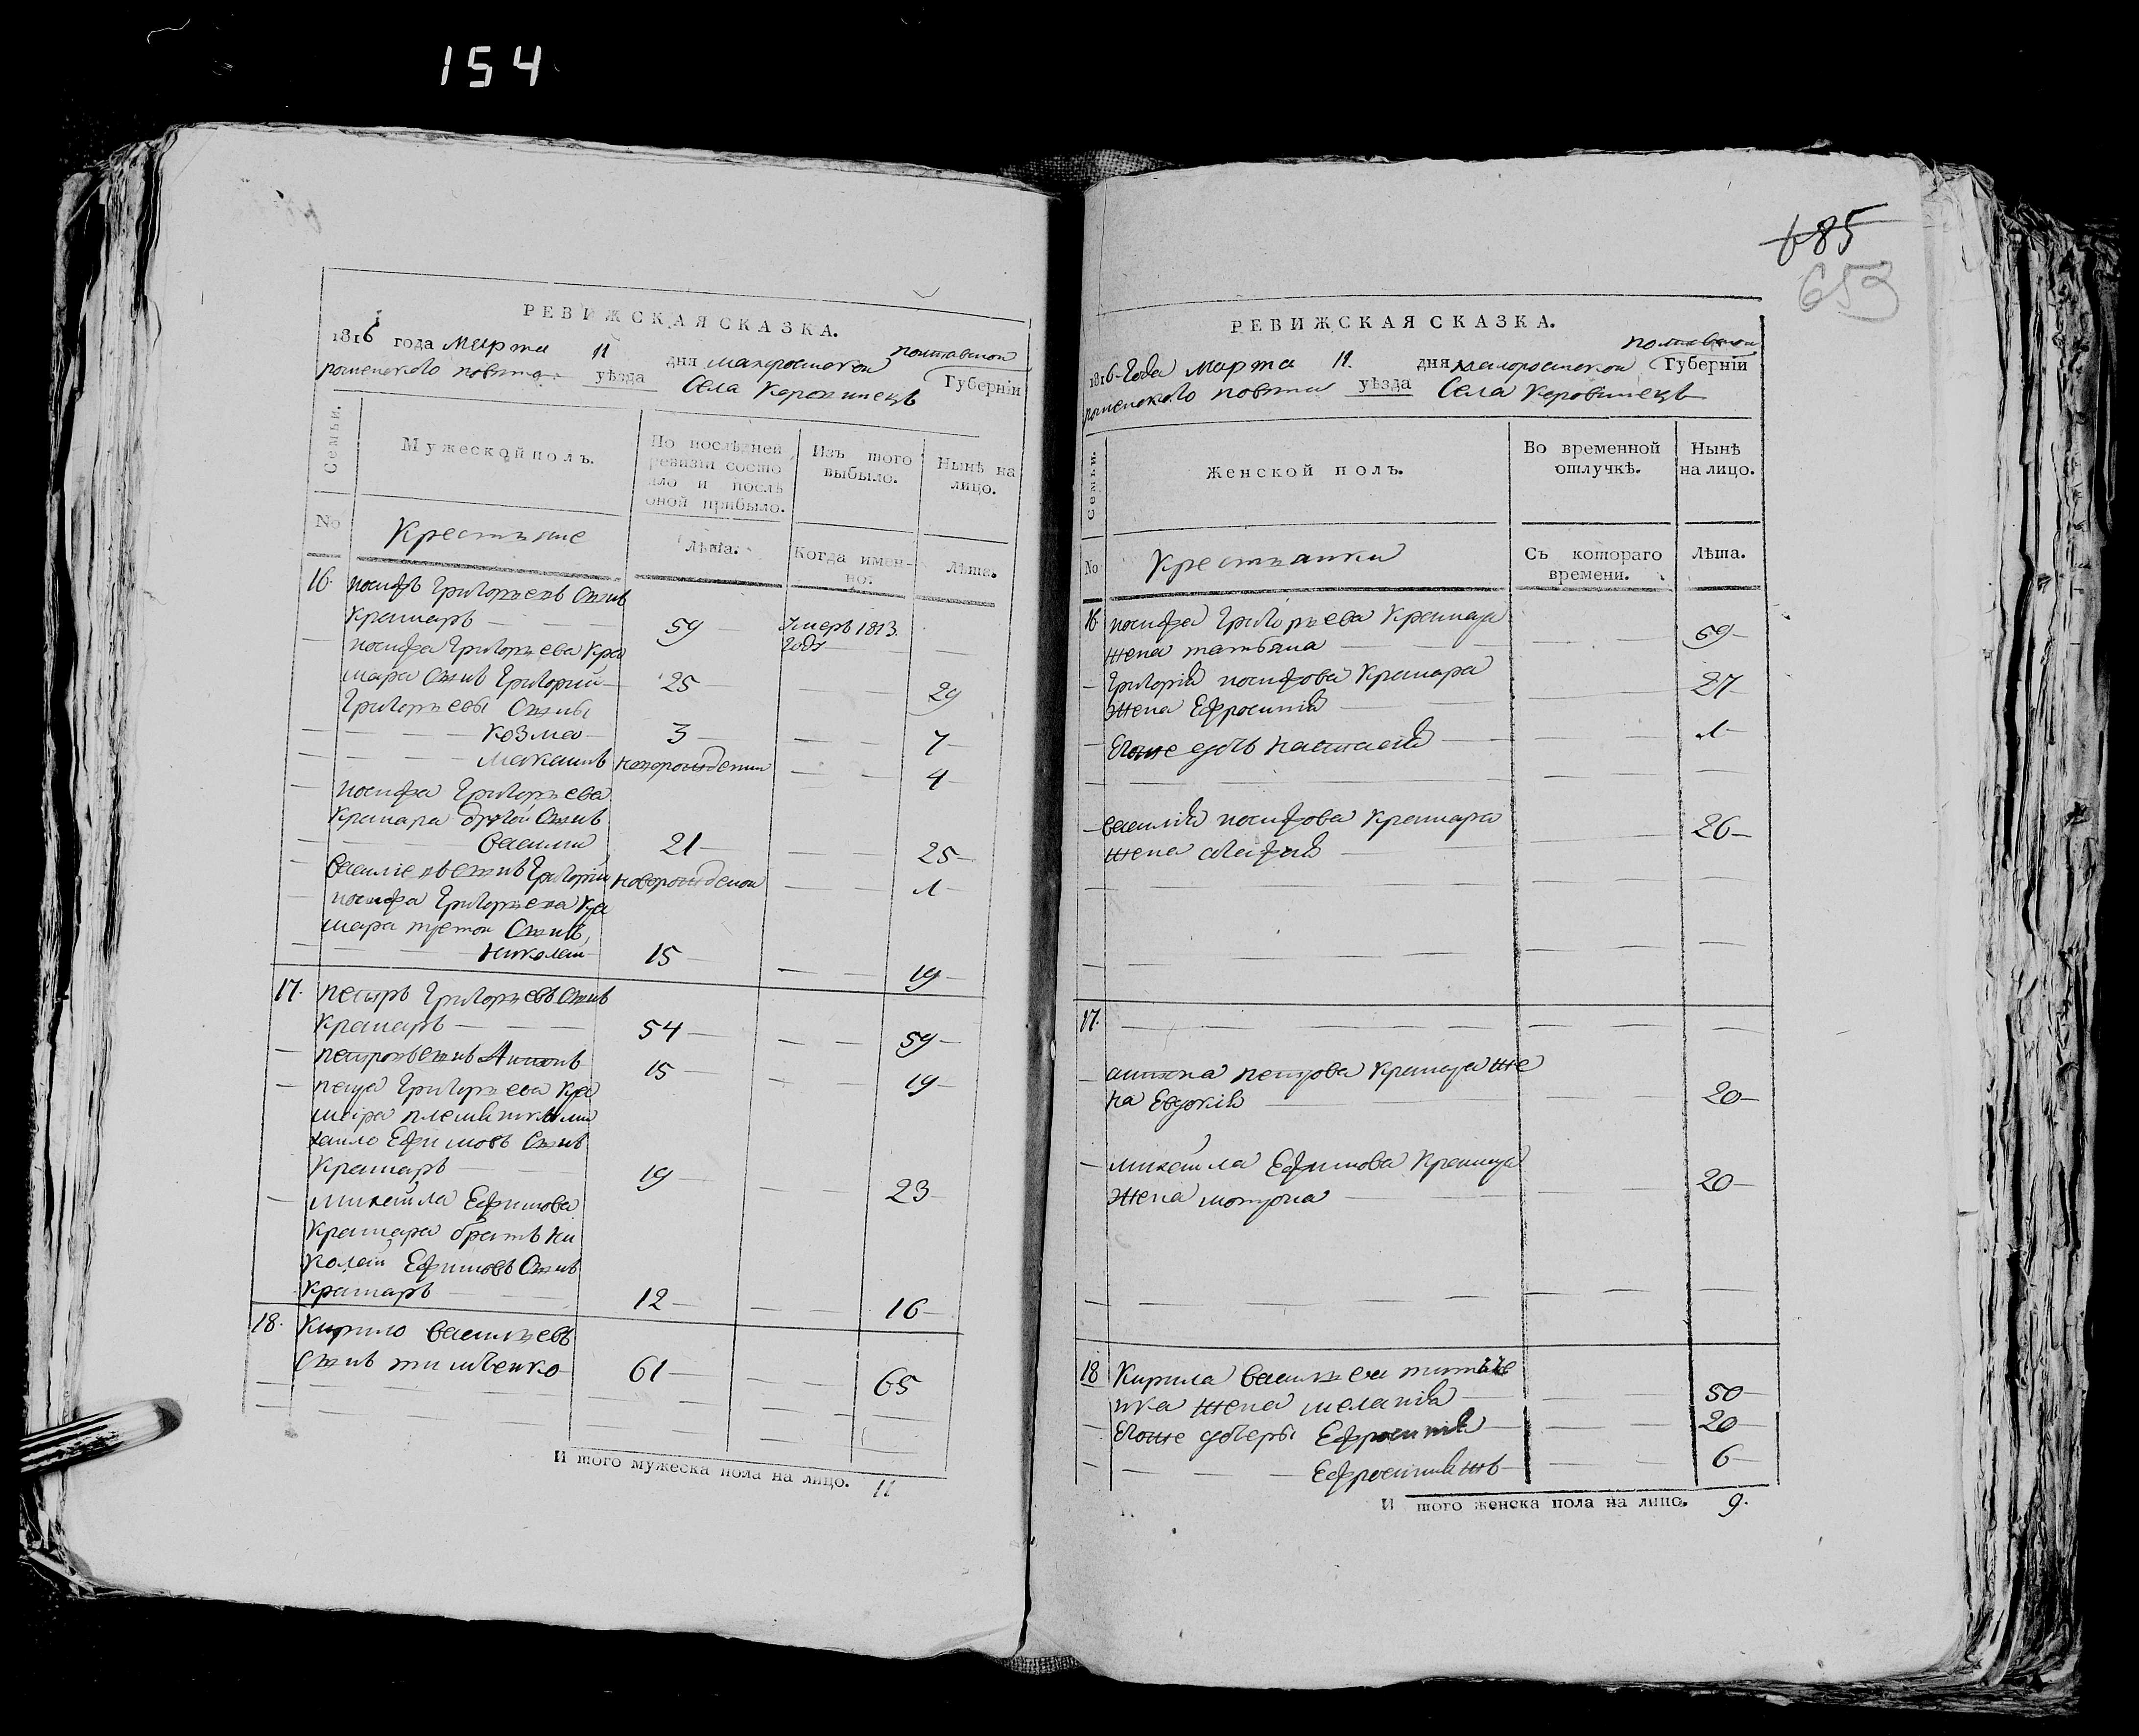 154
РЕВИЖСКАЯ СКАЗКА.
1816 года марта 11 дня малоросиской полтавской Губерніи
роменского повята уѣзда Села Коровинецъ
Семьи.
Мужеской полъ.
По послѣдней ревизіи состояло и послѣ оной прибыло.
Изъ того выбыло.
Нынѣ на лицо.
No
Крестьяне
Лѣта.
Когда имен-
но.
Лѣта.
16. иосифъ Григорьевъ Сынъ
Крамаръ 59 Умеръ 1813.
года
иосифа Григорьева Кра
мара Сынъ Григорий 25 29
Григорьевы Сыны
Козма 3 7
максимъ новорожденни 4
иосифа Григорьева
Крамара другой Сынъ
василий 21 25
василіевъ сынъ Григорий новорожденой 1
иосифа Григорьева Кра
мара третой Сынъ
николай 15 19
17. петръ Григорьевъ Сынъ
Крамаръ 54 59
петровъ сынъ Антонъ 15 19
петра Григорьева Кра
мара племянникъ ми
хайло Ефимовъ Сынъ
Крамаръ 19 23
михайла Ефимова
Крамара братъ ни
колай Ефимовъ Сынъ
Крамаръ 12 16
18. Кирило васильевъ
Сынъ тимченко 61 65
И того мужеска пола на лицо. 11
685
653
РЕВИЖСКАЯ СКАЗКА.
1816 года марта 11. дня малоросиской полтавской Губерніи
роменского повята уѣзда Села Коровинецъ
Семьи.
Женской полъ.
Во временной отлучкѣ.
Нынѣ на лицо.
No
Крестьянки
Съ котораго времени.
Лѣта.
16 иосифа Григорьева Крамара
жена татьяна 59
Григорія иосифова Крамара
жена Ефросинія 27
Егоже дочь настасія 1
василія иосифова Крамара
жена агафія 26
17.
антона петрова Крамара же
на Евдокія 20
михайла Ефимова Крамара
жена мотрона 20
18 Кирила васильева тимче
нка жена меланія 50
Егоже дочеры Ефросинія 20
Ефросинія жъ 6
И того женска пола на лицо. 9.